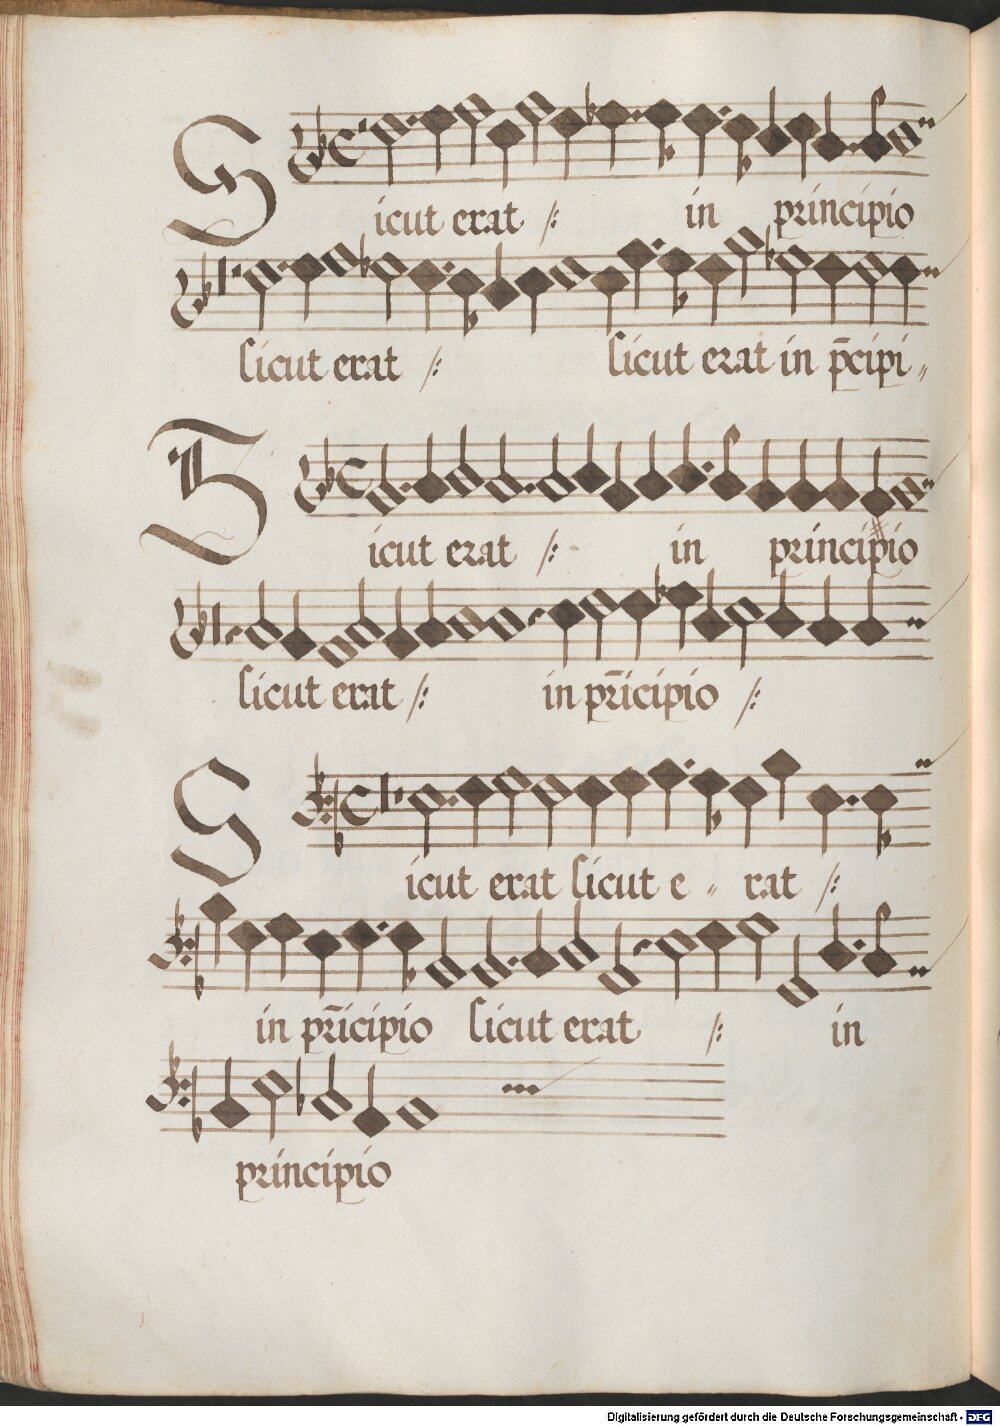 Sicut erat /: in principio
sicut erat /: sicut erat in p̄cipi„
Sicut erat /: in principio
sicut erat /: in pr̄icipio /:
Sicut erat sicut e„ rat /:
in pr̄icipio sicut erat /: in
principio
Digitalisierung gefördert durch die Deutsche Forschungsgemeinschaft - DFG